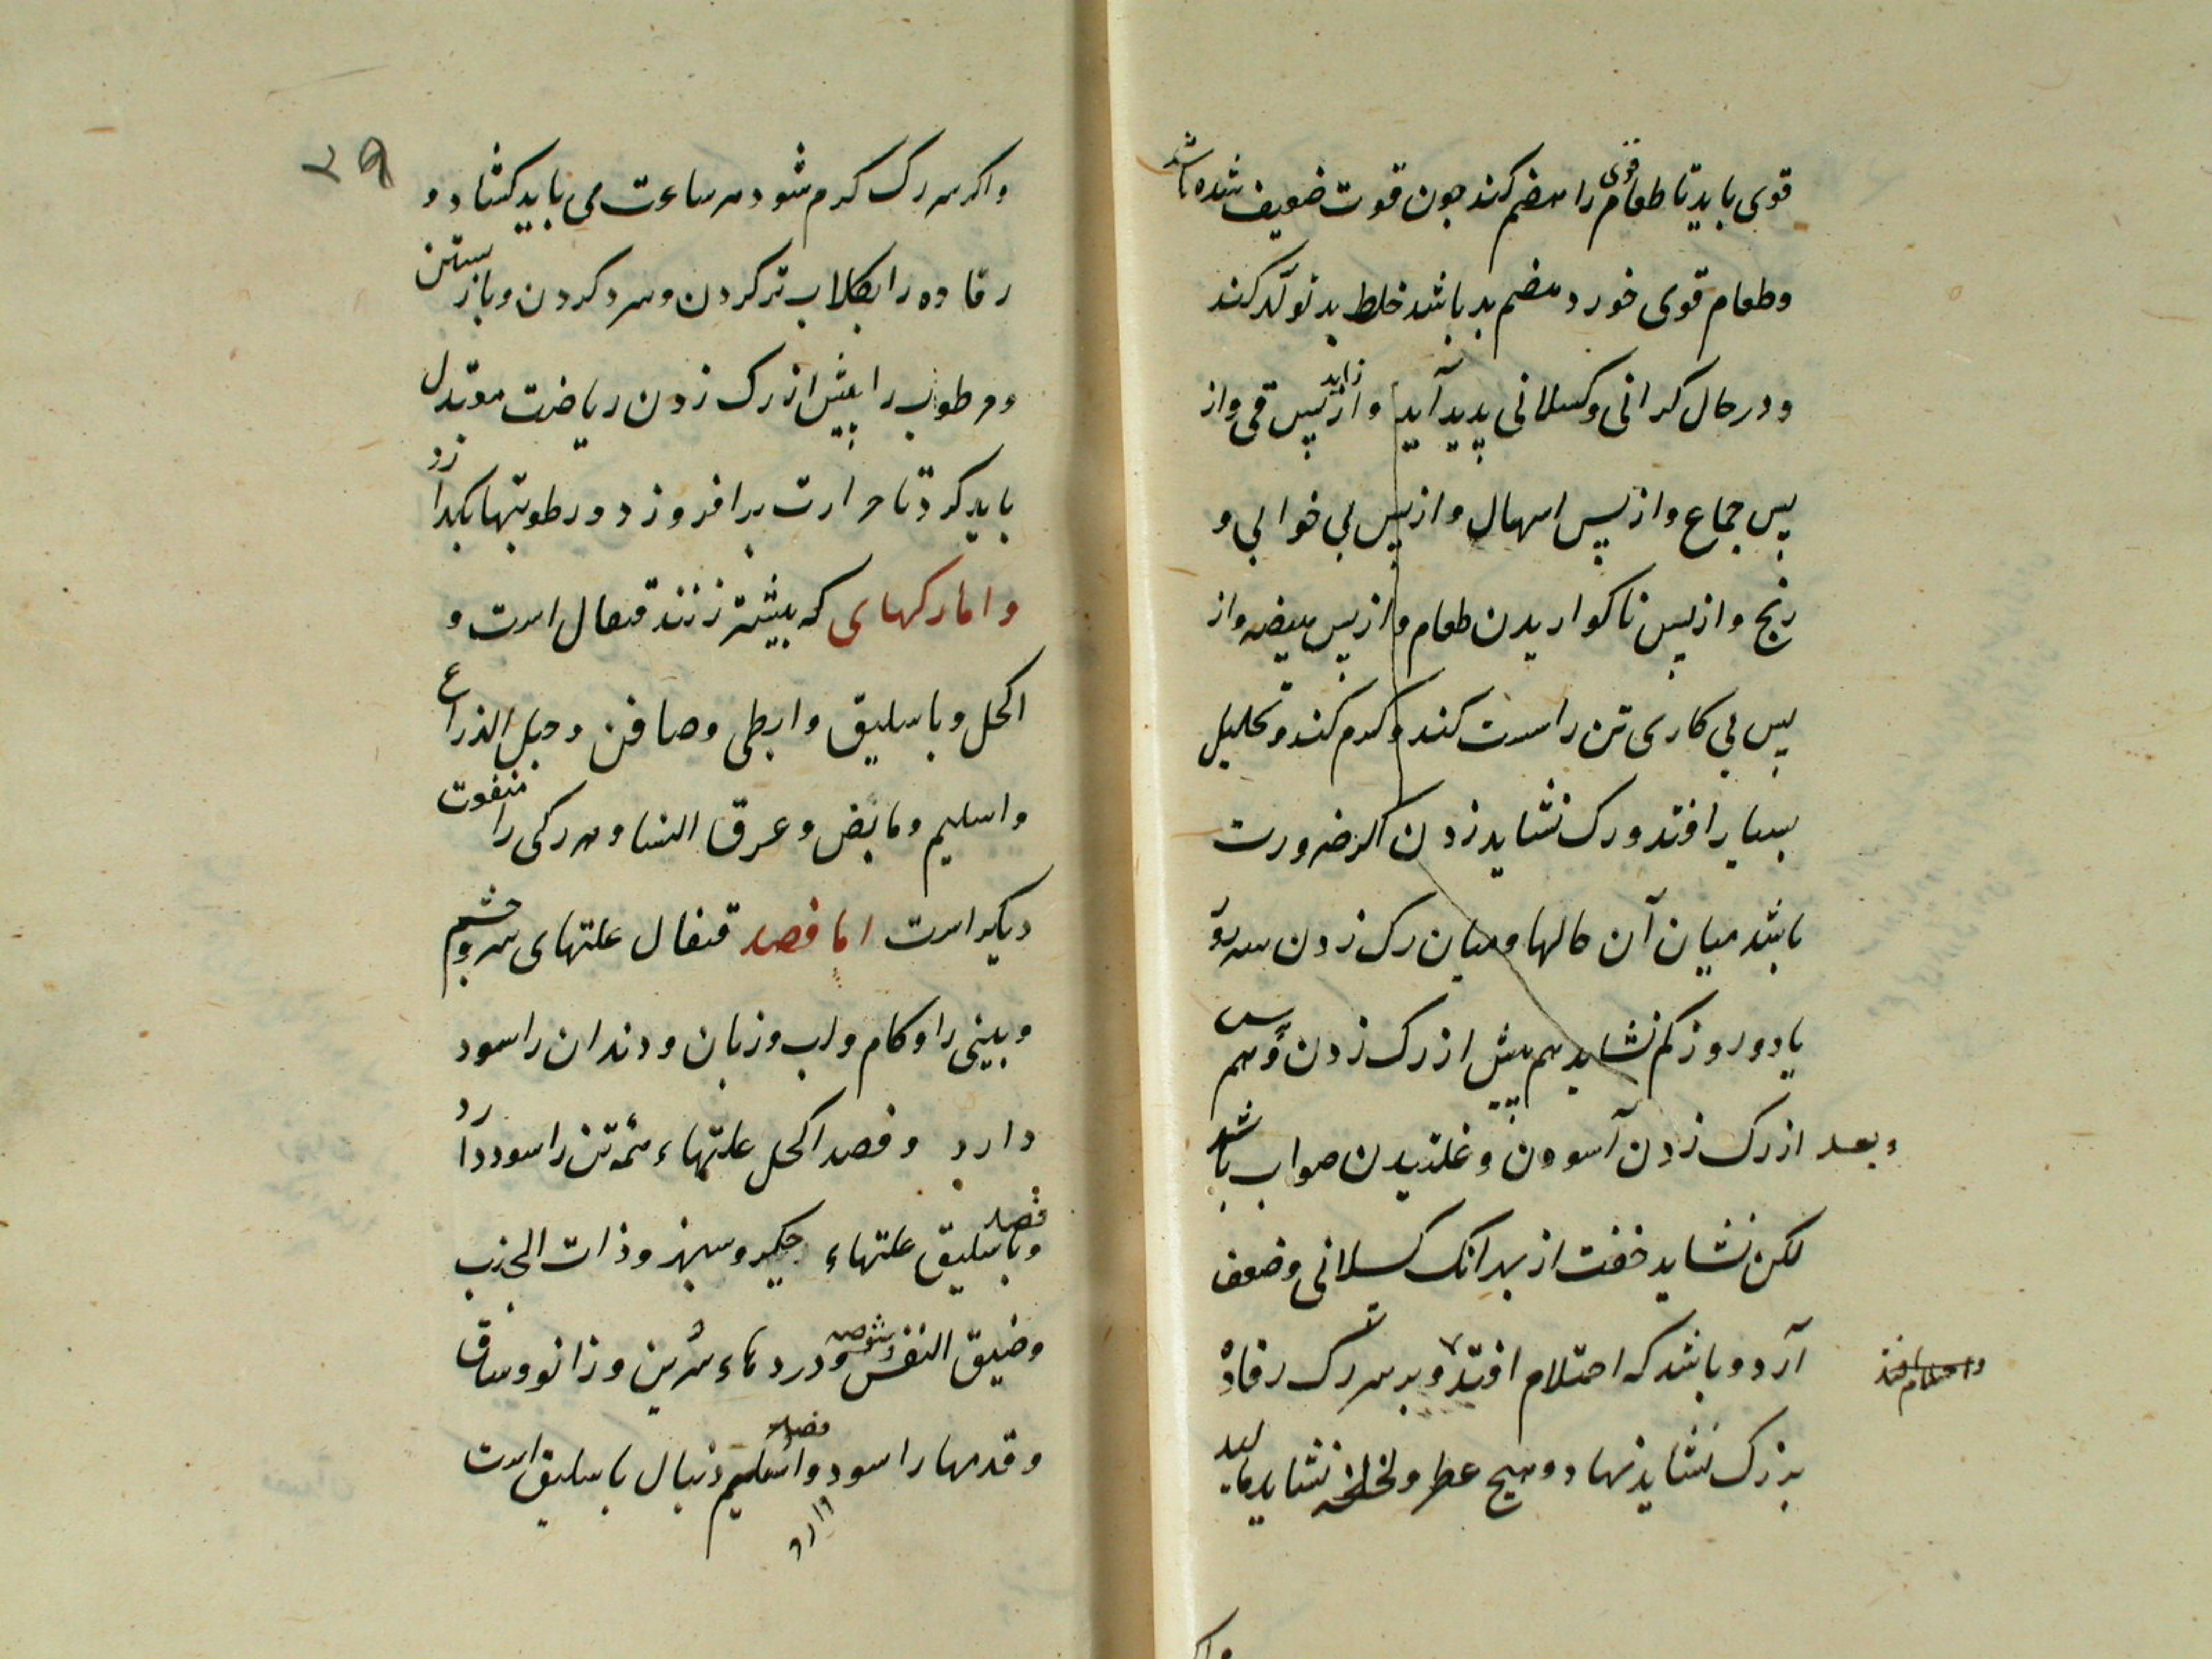 قوی باید تا طعام قوی را هضم کند جون قوت ضعیف شده باشد
وطعام قوی خورد هضم بد باشد خلط بد تولّد کند
ودر حال کرانی وکسلانی پدید آید و از پس قی واز
پس جماع واز پس اسهال واز پس بی خوابی و
رنج واز پس ناکواریدن طعام واز پس هیضه واز
پس بی کاری تن را سست کند وکرم کند وتحلیل
بسیار افتد ورک نشاید زدن اکر ضرورت
باشد میان آن حالها ومیان رک زدن سه روز
یا دو روز کم نشاید هم پیش از رک زدن وهم پس
وبعد از رک زدن آسودن وغلتیدن صواب باشد
لکن نشاید خفت از بهر انک کسلانی وضعف
آرد وباشد که احتلام افتد وبر سر رک رفاده
واحتلام افتد
بزرک نشاید نهاد وهیچ عطر ولخلخه نشاید مالید
واکر
۲۹
واکر سر رک کرم شود هر ساعت می باید کشاد و
رفاده را بکلاب تر کردن وسرد کردن وباز بستن
ومرطوب را پیش از رک زدن ریاضت معتدل
باید کرد تا حرارت برافروزد ورطوبتها بکدازد
واما رکهای که بیشتر زنند قیفال است و
اکحل وباسلیق وابطی وصافن وحبل الذراع
واسلیم ومابض وعرق النسا وهر رکی را منفعت
دیکر است اما فصد قیفال علتهای سر وچشم
وبینی را وکام ولب وزبان ودندان را سود
دارد وفصد اکحل علتهاء همه تن را سود دارد
وفصد باسلیق علتهاء جکر وسپرز وذات الجنب
وضیق النفس وشوصه ودردهاء سرین وزانو وساق
وقدمها را سود وفصد اسلیم دنبال باسلیق است
دارد